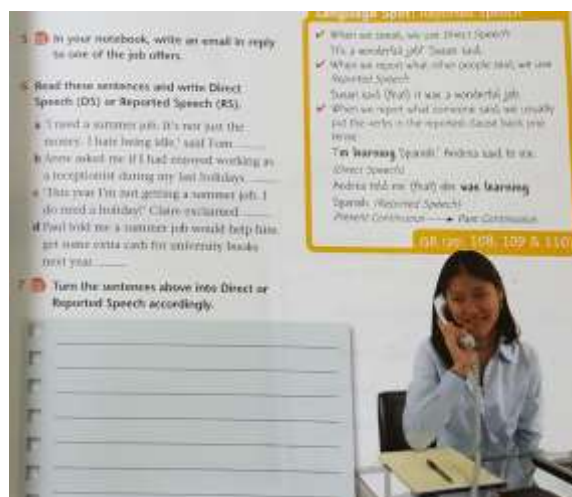 5 In your notebook, write an email in reply
to one of the job offers.
6 Read these sentences and write Direct
Speech (DS) or Reported Speech (RS).
a 'I need a summer job. It's not just the
money. I hate being idle,' said Tom
b Anne asked me if I had enjoyed working as
a receptionist during my last holidays.
c 'This year I'm not getting a summer job. I
do need a holiday!' Claire exclaimed
d Paul told me a summer job would help him
get some extra cash for university books
next year
7 Turn the sentences above into Direct or
Reported Speech accordingly.
Language Spot: Reported Speech
✓ When we speak, we use Direct Speech
'It's a wonderful job!' Susan said.
✓ When we report what other people said, we use
Reported Speech
Susan said (that) it was a wonderful job.
✓ When we report what someone said, we usually
put the verbs in the reported clause back one
tense
'I'm learning Spanish.' Andrea said to me.
(Direct Speech)
Andrea told me (that) she was learning
Spanish. (Reported Speech)
Present Continuous → Past Continuous
108, 109 & 110